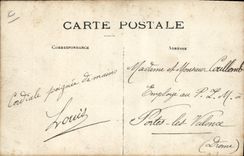 CARTE POSTALE
CORRESPONDANCE
ADRESSE
Cordiale poignée de mains
Louis
Madame et Monsieur Coullomb
Employé au P. L. M. à
Portes-les Valence
(Drôme)